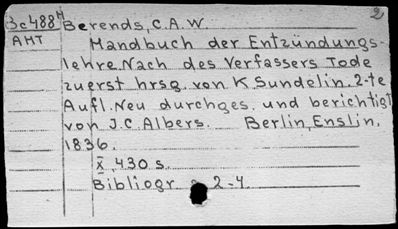 2
3c488H Berends, C.A.W.
AHT Handbuch der Entzündungs-
lehre. Nach des Verfassers Tode
zuerst hrsg. von K. Sundelin. 2-te
Aufl. Neu durchges. und berichtigt
von J.C. Albers. Berlin, Enslin,
1836.
X, 430 s.
Bibliogr. 2-4.